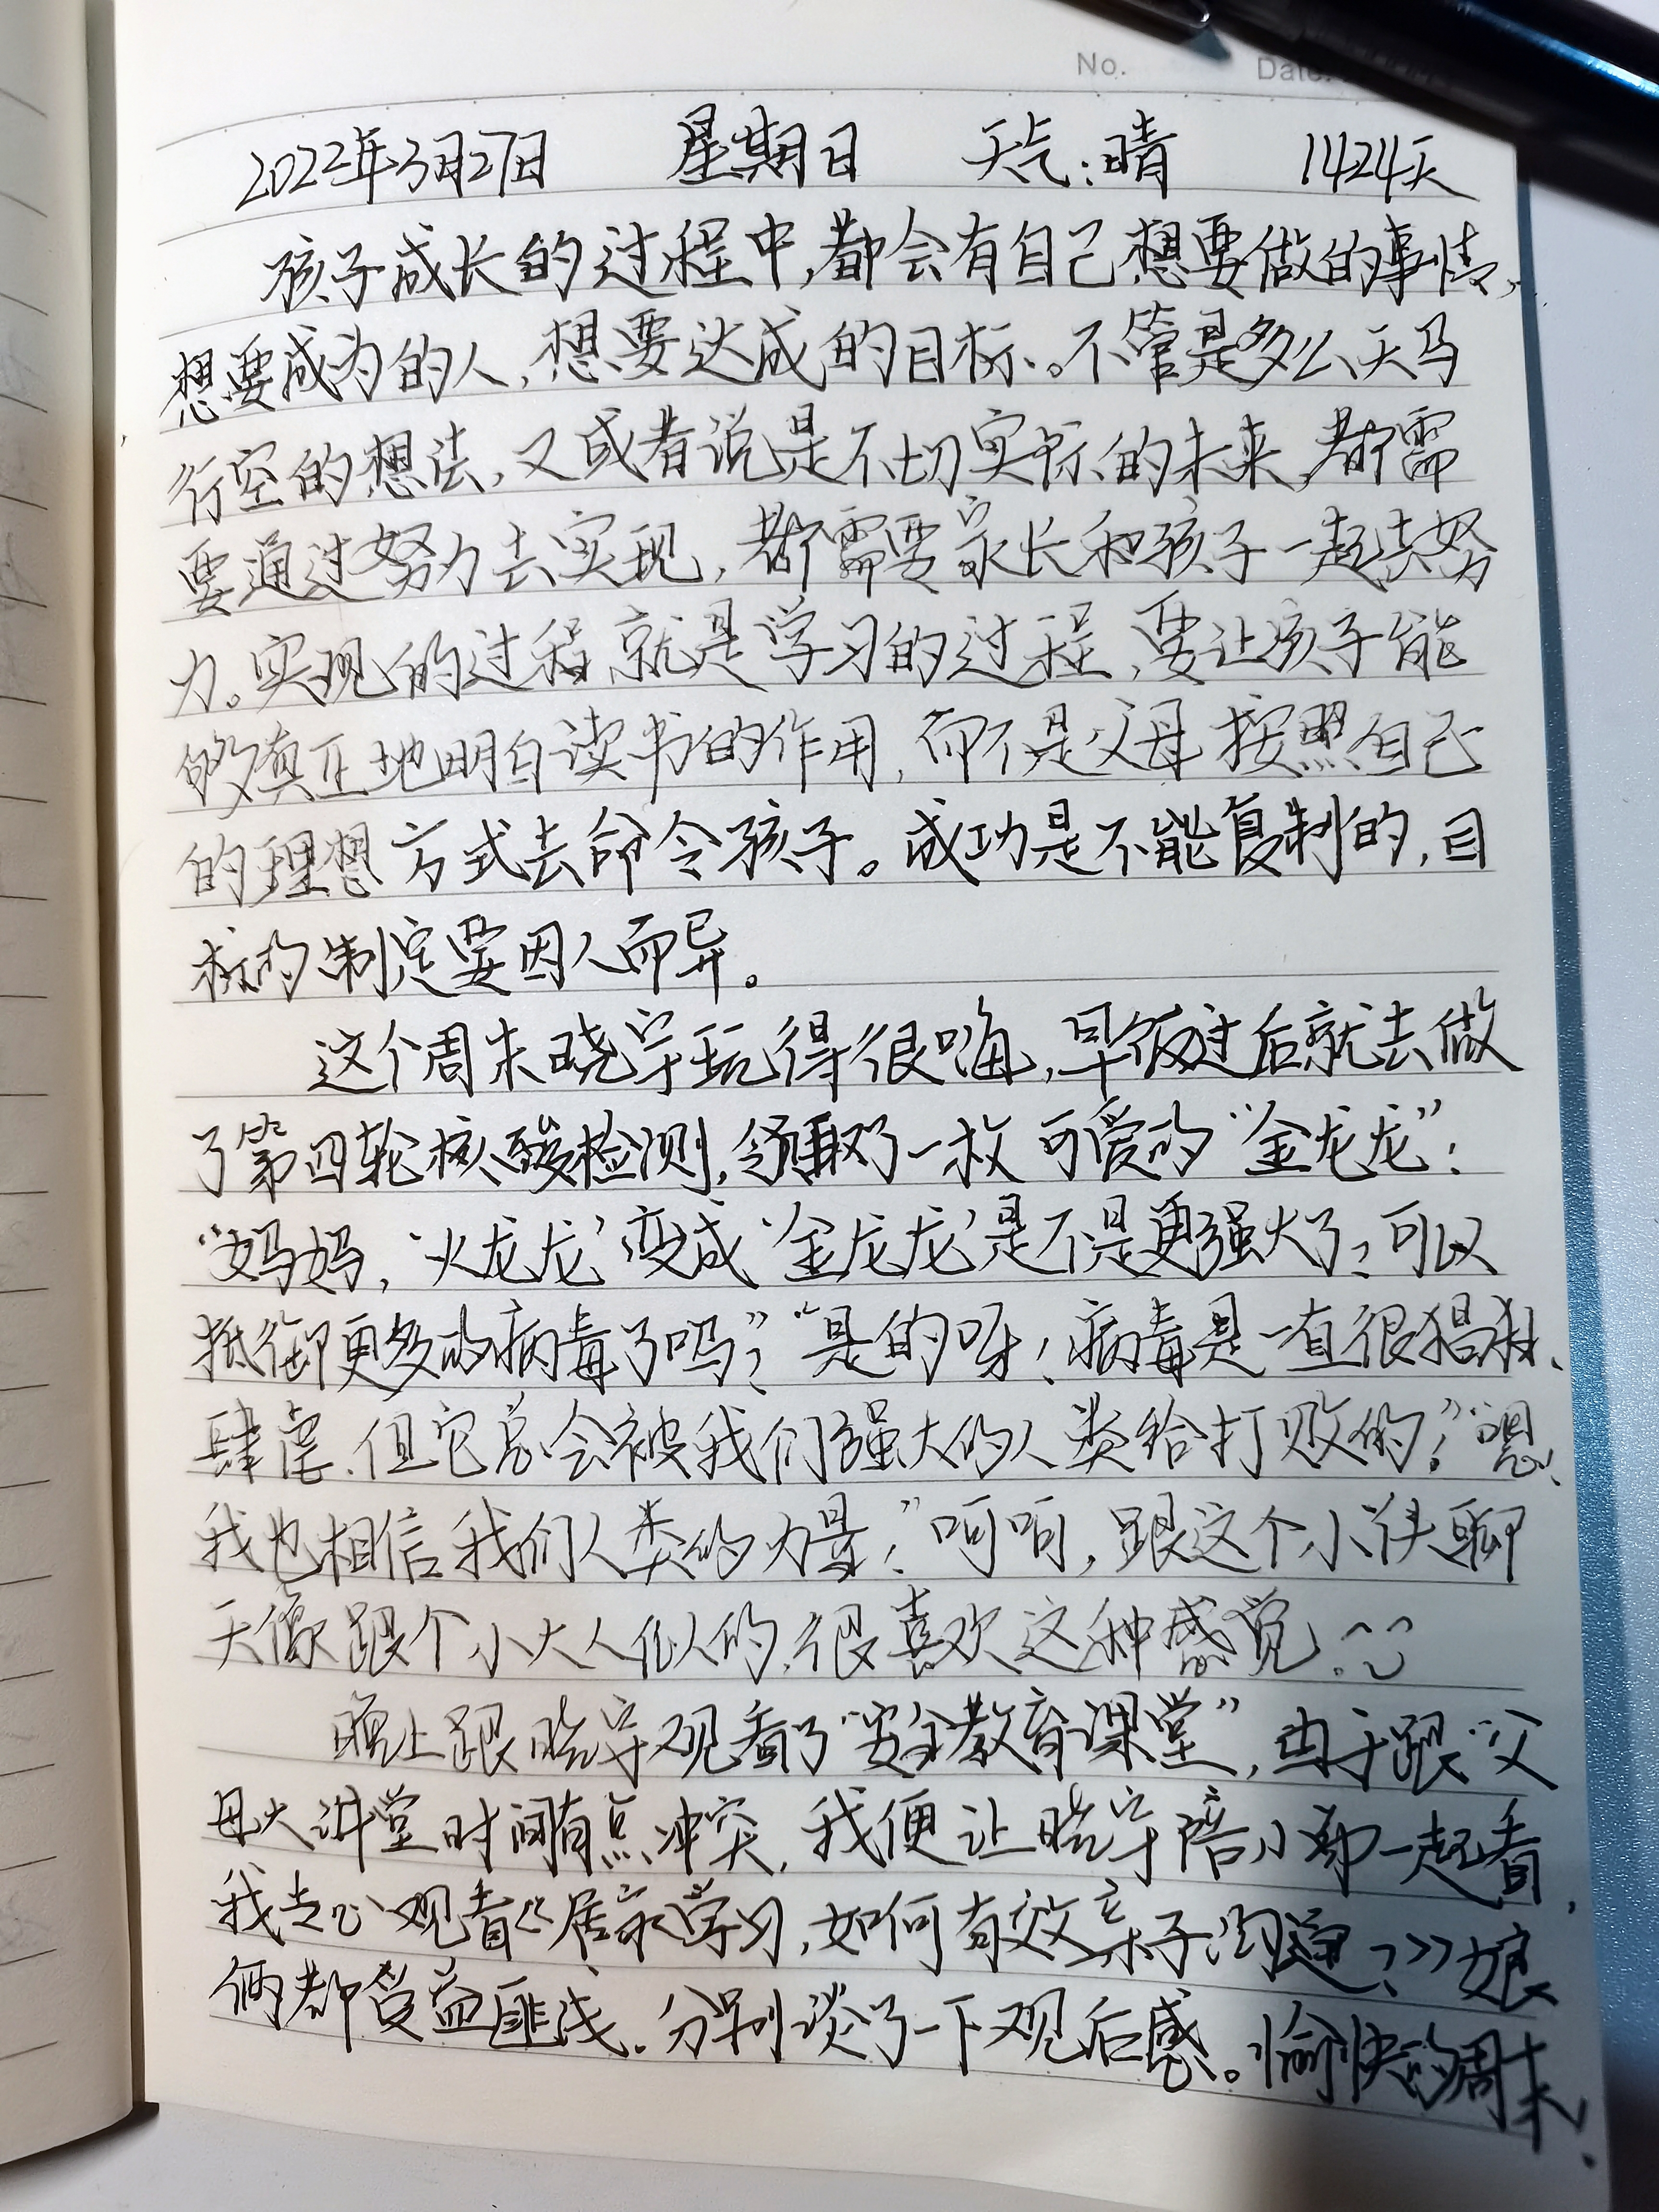 No. Date.
2022年3月27日 星期日 天气:晴 1424天
孩子成长的过程中,都会有自己想要做的事情,
想要成为的人,想要达成的目标。不管是多么天马
行空的想法,又或者说是不切实际的未来,都需
要通过努力去实现,都需要家长和孩子一起去努
力。实现的过程就是学习的过程,要让孩子能
够真正地明白读书的作用,而不是父母按照自己
的理想方式去命令孩子。成功是不能复制的,目
标的制定要因人而异。
这个周末晓宇玩得很嗨,早饭过后就去做
了第四轮核酸检测,领取了一枚可爱的“金龙龙”!
“妈妈,‘火龙龙’变成‘金龙龙’是不是更强大了?可以
抵御更多的病毒了吗?”“是的呀!病毒是一直很猖狂、
肆虐,但它总会被我们强大的人类给打败的!”“嗯,
我也相信我们人类的力量!”呵呵,跟这个小伙聊
天像跟个小大人似的,很喜欢这种感觉!
晚上跟晓宇观看了“安全教育课堂”,由于跟“父
母大讲堂时间有点冲突,我便让晓宇陪小弟一起看,
我专心观看《居家学习,如何有效亲子沟通?》娘
俩都受益匪浅.分别谈了一下观后感。愉快的周末!